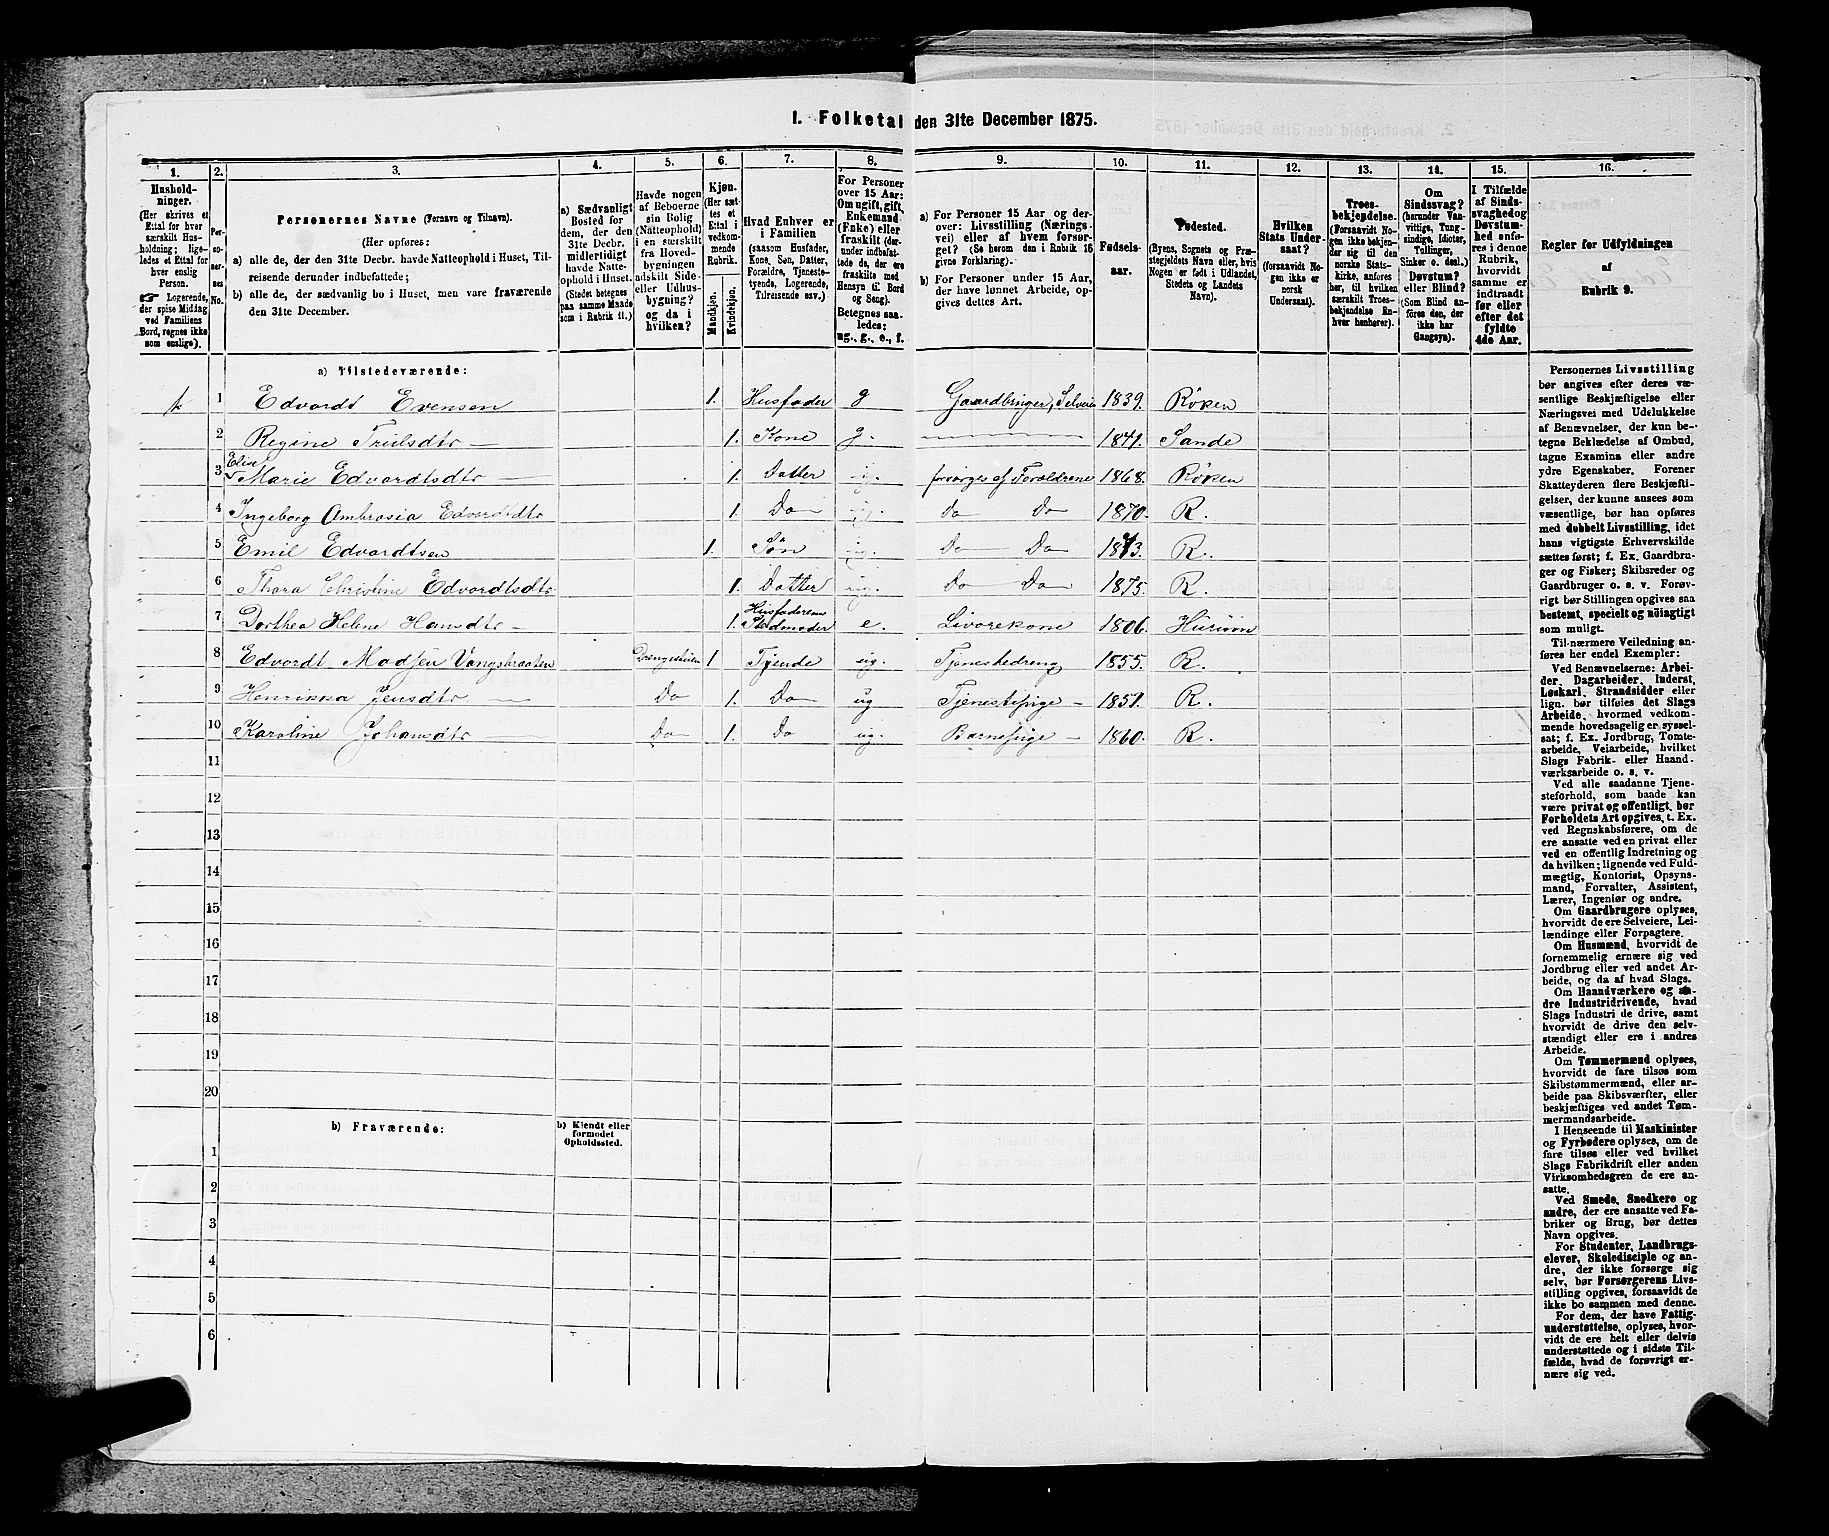 1. Folketal den 31te December 1875.
1. 2. 3. 4. 5. 6. 7. 8. 9. 10. 11. 12. 13. 14. 15. 16.
Husholdninger.
(Her skrives et
Ettal for hver
særskilt Husholdning;
ligeledes et Ettal for
hver enslig
Person.
☛ Logerende,
der spise Middag
ved Familiens
Bord, regnes ikke
som enslige).
Personernes No.
Personernes Navne (Fornavn og Tilnavn).
(Her opføres:
a) alle de, der den 31te Decbr. havde Natteophold i Huset, Tilreisende
derunder indbefattede;
b) alle de, der sædvanlig bo i Huset, men vare fraværende
den 31te December.
a) Sædvanligt
Bosted for
dem, der den
31te Decbr.
midlertidigt
havde Natteophold
i Huset.
(Stedet betegnes
paa samme Maade
som i Rubrik 11.)
Havde nogen
af Beboerne
sin Bolig
(Natteophold)
i en særskilt
fra Hovedbygningen
adskilt Side-
eller Udhusbygning?
og da i
hvilken?
Kjøn.
(Her sættes
et
Ettal i
vedkommende
Rubrik.
Mandkjøn.
Kvindekjøn.
Hvad Enhver er
i Familien
(saasom Husfader,
Kone, Søn, Datter,
Forældre, Tjenestetyende,
Logerende,
Tilreisende osv.)
For Personer
over 15 Aar:
Om ugift, gift,
Enkemand
(Enke) eller
fraskilt (derunder
indbefattede
de, der ere
fraskilte med
Hensyn til Bord
og Seng).
Betegnes saaledes:
ug., g., e., f.
a) For Personer 15 Aar og derover:
Livsstilling (Næringsvei)
eller af hvem forsørget?
(Se herom den i Rubrik 16
givne Forklaring).
b) For Personer under 15 Aar,
der have lønnet Arbeide, opgives
dettes Art.
Fødselsaar.
Fødested.
(Byens, Sognets og Præstegjeldets
Navn eller, hvis
Nogen er født i Udlandet,
Stedets og Landets
Navn).
Hvilken
Stats Undersaat?
(forsaavidt Nogen
ikke er
norsk
Undersaat).
Troesbekjendelse.
(Forsaavidt Nogen
ikke bekjender
sig til den
norske Statskirke,
anføres
her, til hvilken
særskilt Troesbekjendelse
Enhver
henhører).
Om
Sindssvag?
(herunder Vanvittige,
Tungsindige,
Idioter,
Tullinger,
Sinker o. desl.)
Døvstum?
eller Blind?
(Som Blind anføres
den, der
ikke har
Gangsyn).
I Tilfælde
af Sindssvaghed
og
Døvstumhed
anføres
i denne
Rubrik,
hvorvidt
samme er
indtraadt
før eller
efter det
fyldte
4de Aar.
Regler for Udfyldningen
af
Rubrik 9.
a) Tilstedeværende:
1 Edvardt Evensen 1. Husfader g Gaardbruger, Selveier 1839. Røken
2 Regine Trulsdtr — 1. Kone g. — 1841. Sande
3 Elise Marie Edvardtsdtr 1. Datter ug. forsørges af Forældrene 1868. Røken
4 Ingeborg Ambrosia Edvardtsdtr 1. Do ug. Do Do 1870. R.
5 Emil Edvardtsen 1. Søn ug. Do Do 1873. R.
6 Thora Christine Edvardtsdtr 1. Datter ug. Do Do 1875. R.
7 Dorthea Helene Hansdtr — 1. Husfaderens Stedmoder e. Livørekone 1806. Hurum
8 Edvardt Madsen Vangsbraaten Drengestuen 1 Tyende ug. Tjenestedreng 1855. R.
9 Henrikka Jensdtr — Do 1. Do ug Tjenestepige — 1851. R.
10 Karoline Johansdtr — Do 1. Do ug. Barnepige — 1860. R.
11
12
13
14
15
16
17
18
19
20
b) Fraværende:
b) Kjendt eller
formodet
Opholdssted.
1
2
3
4
5
6
Personernes Livsstilling
bør angives efter deres væsentlige
Beskjæftigelse eller
Næringsvei med Udelukkelse
af Benævnelser, der kun betegne
Beklædelse af Ombud,
tagne Examina eller andre
ydre Egenskaber. Forener
Skatteyderen flere Beskjæftigelser,
der kunne ansees som
væsentlige, bør han opføres
med dobbelt Livsstilling, idet
hans vigtigste Erhvervskilde
sættes først; f. Ex. Gaardbruger
og Fisker; Skibsreder og
Gaardbruger o. s. v. Forøvrigt
bør Stillingen opgives saa
bestemt, specielt og nøiagtigt
som muligt.
Til nærmere Veiledning anføres
her endel Exempler:
Ved Benævnelserne: Arbeider,
Dagarbeider, Inderst,
Løskarl, Strandsidder eller
lign. bør tilføies det Slags
Arbeide, hvormed vedkommende
hovedsagelig er sysselsat;
f. Ex. Jordbrug, Tomtearbeide,
Veiarbeide, hvilket
Slags Fabrik- eller Haandværksarbeide
o. s. v.
Ved alle saadanne Tjenesteforhold,
som baade kan
være privat og offentligt, bør
Forholdets Art opgives, t. Ex.
ved Regnskabsførere, om de
ere ansatte ved en privat eller
ved en offentlig Indretning og
da hvilken; lignende ved Fuldmægtig,
Kontorist, Opsynsmand,
Forvalter, Assistent,
Lærer, Ingeniør og andre.
Om Gaardbrugere oplyses,
hvorvidt de ere Selveiere, Leilændinge
eller Forpagtere.
Om Husmænd, hvorvidt de
fornemmelig ernære sig ved
Jordbrug eller ved andet Arbeide,
og da af hvad Slags.
Om Haandværkere og andre
Industridrivende, hvad
Slags Industri de drive, samt
hvorvidt de drive den selvstændigt
eller ere i andres
Arbeide.
Om Tømmermænd oplyses,
hvorvidt de fare tilsøs som
Skibstømmermænd, eller arbeide
paa Skibsværfter, eller
beskjæftiges ved andet Tømmermandsarbeide.
I Henseende til Maskinister
og Fyrbødere oplyses, om de
fare tilsøs eller ved hvilket
Slags Fabrikdrift eller anden
Virksomhedsgren de ere ansatte.
Ved Smede, Snedkere og
andre, der ere ansatte ved Fabriker
og Brug, bør dettes
Navn opgives.
For Studenter, Landbrugselever,
Skoledisciple og andre,
der ikke forsørge sig
selv, bør Forsørgerens Livsstilling
opgives, forsaavidt de
ikke bo sammen med denne.
For dem, der have Fattigunderstøttelse,
oplyses, hvorvidt
de ere helt eller delvis
understøttede og i sidste Tilfælde,
hvad de forøvrigt ernære
sig ved.